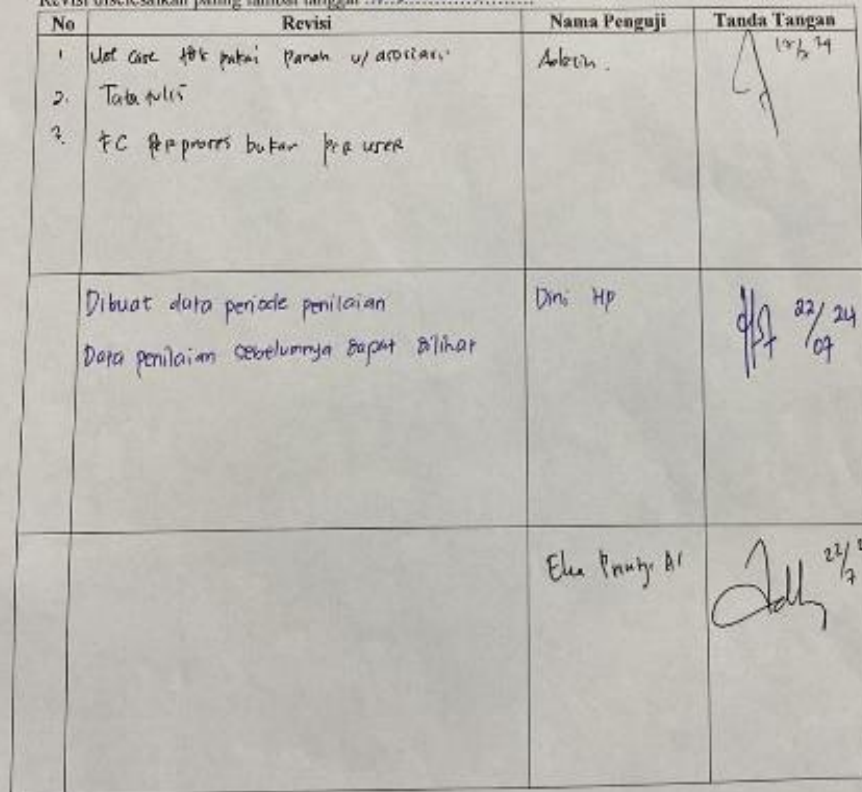 Revisi diselesaikan paling lambat tanggal
No Revisi Nama Penguji Tanda Tangan
1 Use case tdk pakai Panah u/ asosiasi
2. Tata tulis
3. FC per proses bukan per user
Dibuat data periode penilaian Dini HP 22/07 24
Data penilaian sebelumnya dapat dilihat
Eka 22/7